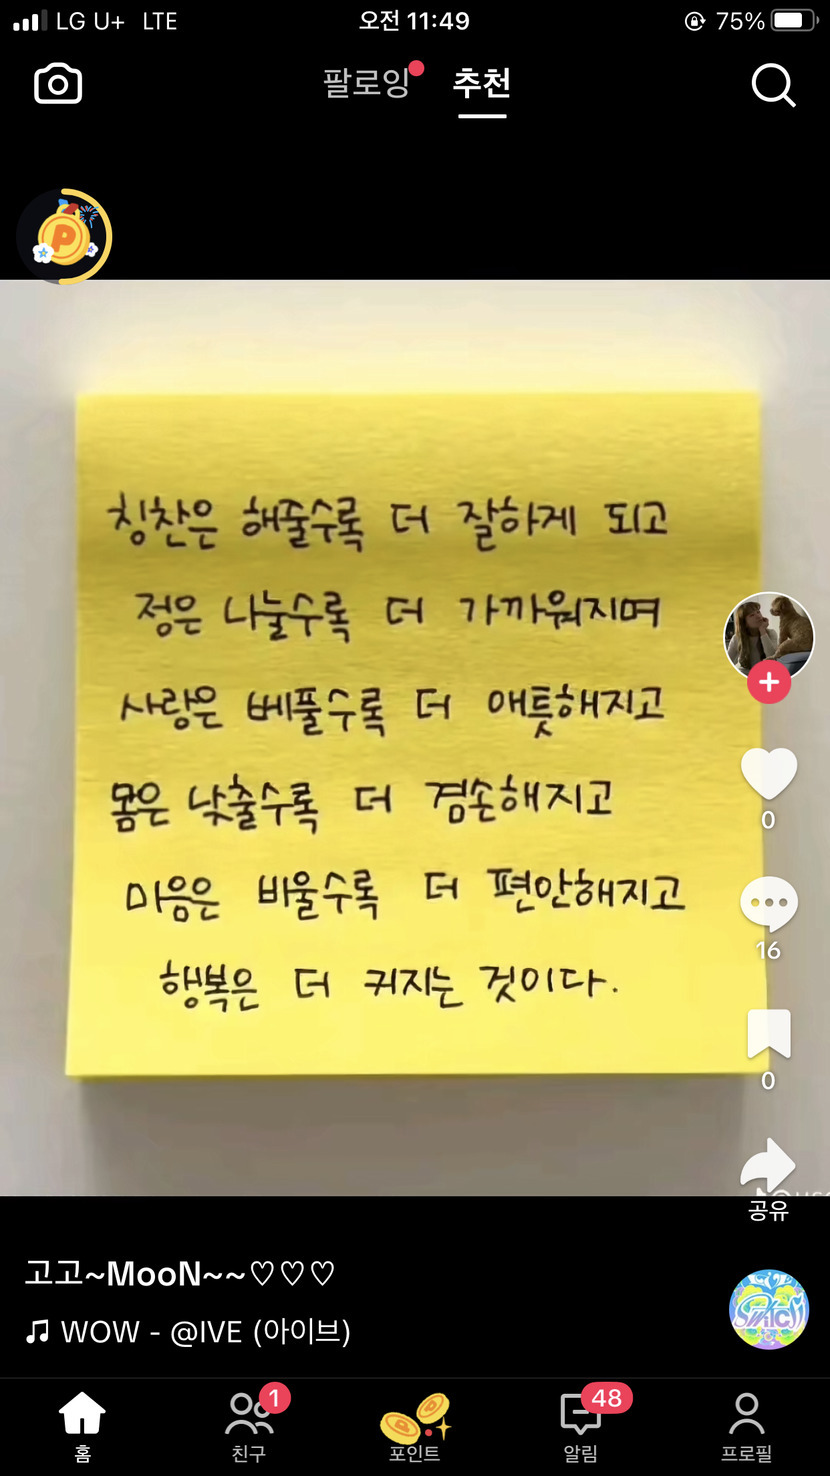 LG U+ LTE 오전 11:49 75%
팔로잉 추천
P
칭찬은 해줄수록 더 잘하게 되고
정은 나눌수록 더 가까워지며
사랑은 베풀수록 더 애틋해지고
몸은 낮출수록 더 겸손해지고
마음은 비울수록 더 편안해지고
행복은 더 커지는 것이다.
0
16
0
공유
고고~MooN~~♡♡♡
WOW - @IVE (아이브)
1
48
홈 친구 포인트 알림 프로필